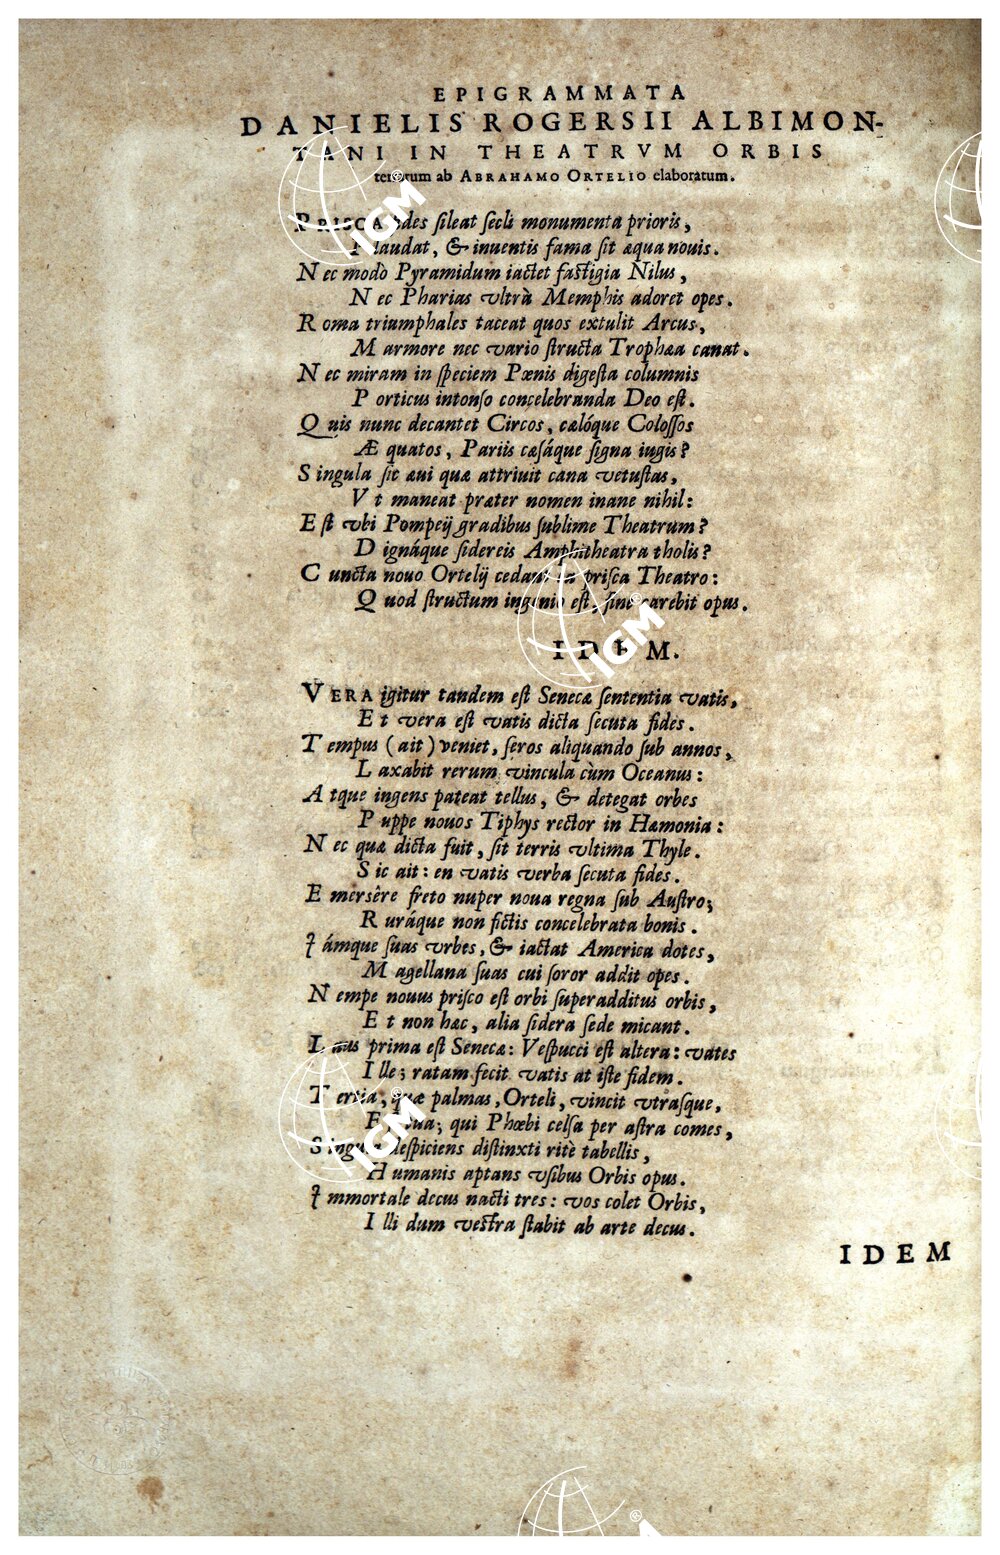 EPIGRAMMATA
DANIELIS ROGERSII ALBIMON-
TANI IN THEATRVM ORBIS
terrarum ab ABRAHAMO ORTELIO elaboratum.
PRISCA fides sileat secli monumenta prioris,
Plaudat, & inuentis fama sit æqua nouis.
Nec modò Pyramidum iactet fastigia Nilus,
Nec Pharias vltrà Memphis adoret opes.
Roma triumphales taceat quos extulit Arcus,
Marmore nec vario structa Trophæa canat.
Nec miram in speciem Pœnis digesta columnis
Porticus intonso concelebranda Deo est.
Quis nunc decantet Circos, cælóque Colossos
Æquatos, Pariis cæsáque signa iugis?
Singula sic æui quæ attriuit cana vetustas,
Vt maneat præter nomen inane nihil:
Est vbi Pompeij gradibus sublime Theatrum?
Dignáque sidereis Amphitheatra tholis?
Cuncta nouo Ortelij cedant prisca Theatro:
Quod structum ingenio est, fine carebit opus.
IDEM.
VERA igitur tandem est Senecæ sententia vatis,
Et vera est vatis dicta secuta fides.
Tempus (ait) veniet, seros aliquando sub annos,
Laxabit rerum vincula cùm Oceanus:
Atque ingens pateat tellus, & detegat orbes
Puppe nouos Tiphys rector in Hæmonia:
Nec quæ dicta fuit, sit terris vltima Thyle.
Sic ait: en vatis verba secuta fides.
Emersêre freto nuper noua regna sub Austro;
Ruráque non fictis concelebrata bonis.
Iámque suas vrbes, & iactat America dotes,
Magellana suas cui soror addit opes.
Nempe nouus prisco est orbi superadditus orbis,
Et non hæc, alia sidera sede micant.
Laus prima est Senecæ: Vespucci est altera: vates
Ille; ratam fecit vatis at iste fidem.
Tertia, quæ palmas, Orteli, vincit vtrasque,
tua; qui Phœbi celsa per astra comes,
Singula despiciens distinxti ritè tabellis,
Humanis aptans vsibus Orbis opus.
Immortale decus nacti tres: vos colet Orbis,
Illi dum vestra stabit ab arte decus.
IDEM
IGM
IGM
IGM